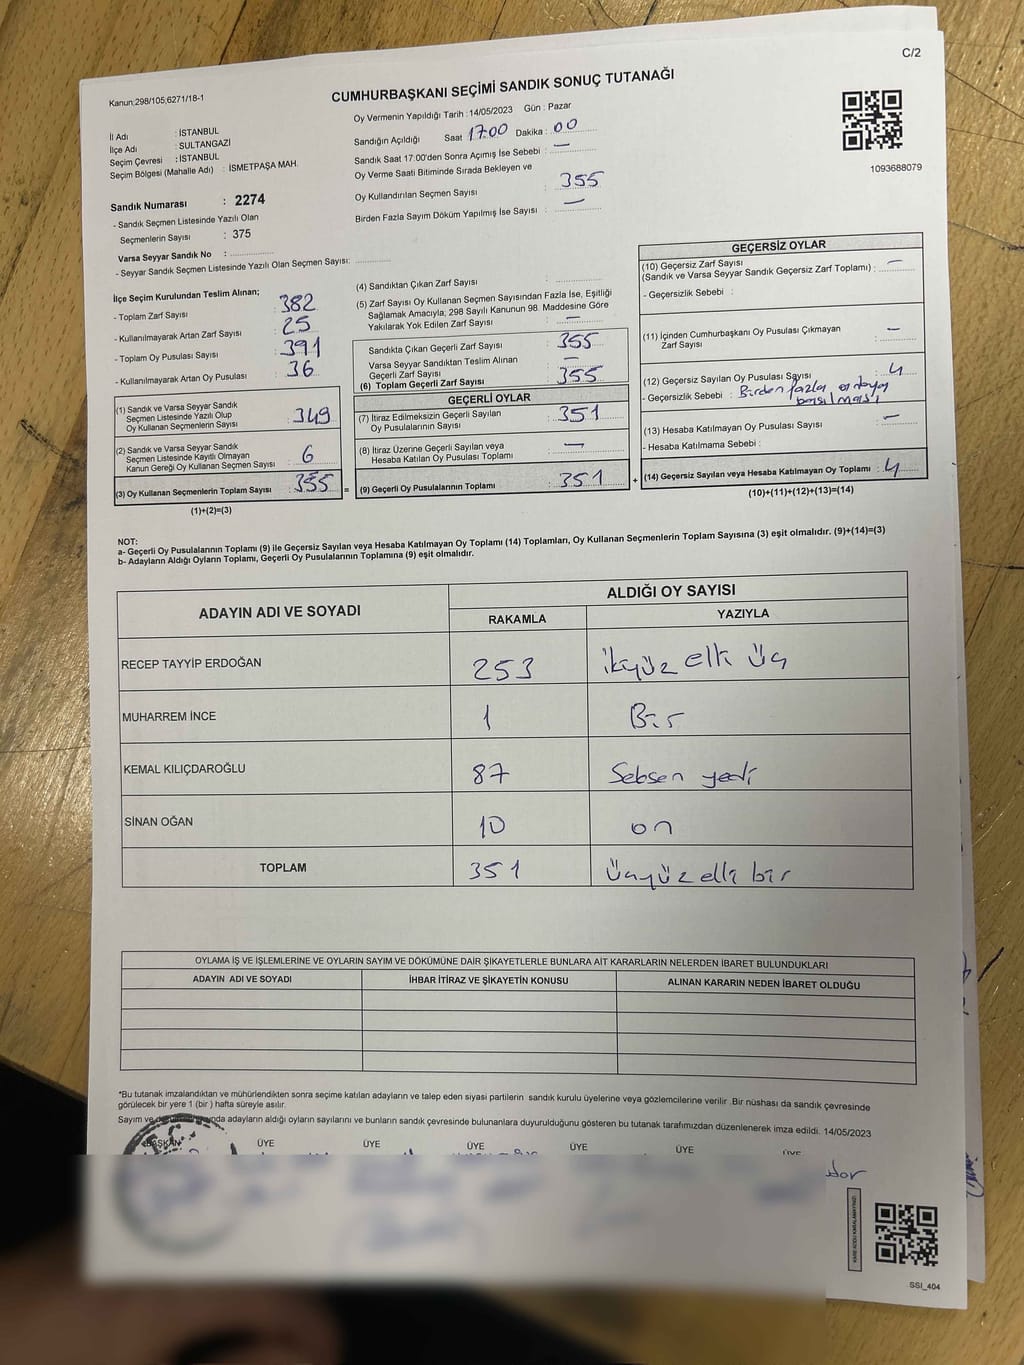 C/2
Kanun;298/105;6271/18-1
CUMHURBAŞKANI SEÇİMİ SANDIK SONUÇ TUTANAĞI
1093688079
İl Adı : İSTANBUL
İlçe Adı : SULTANGAZİ
Seçim Çevresi : İSTANBUL
Seçim Bölgesi (Mahalle Adı) : İSMETPAŞA MAH.
Sandık Numarası : 2274
- Sandık Seçmen Listesinde Yazılı Olan
Seçmenlerin Sayısı : 375
Varsa Seyyar Sandık No :
- Seyyar Sandık Seçmen Listesinde Yazılı Olan Seçmen Sayısı:
Oy Vermenin Yapıldığı Tarih : 14/05/2023 Gün : Pazar
Sandığın Açıldığı Saat 17:00 Dakika : 00
Sandık Saat 17:00'den Sonra Açımış İse Sebebi : —
Oy Verme Saati Bitiminde Sırada Bekleyen ve
Oy Kullandırılan Seçmen Sayısı : 355
Birden Fazla Sayım Döküm Yapılmış İse Sayısı : —
İlçe Seçim Kurulundan Teslim Alınan;
- Toplam Zarf Sayısı : 382
- Kullanılmayarak Artan Zarf Sayısı : 25
- Toplam Oy Pusulası Sayısı : 391
- Kullanılmayarak Artan Oy Pusulası : 36
(1) Sandık ve Varsa Seyyar Sandık
Seçmen Listesinde Yazılı Olup
Oy Kullanan Seçmenlerin Sayısı : 349
(2) Sandık ve Varsa Seyyar Sandık
Seçmen Listesinde Kayıtlı Olmayan
Kanun Gereği Oy Kullanan Seçmen Sayısı : 6
(3) Oy Kullanan Seçmenlerin Toplam Sayısı : 355
(1)+(2)=(3)
(4) Sandıktan Çıkan Zarf Sayısı :
(5) Zarf Sayısı Oy Kullanan Seçmen Sayısından Fazla İse, Eşitliği
Sağlamak Amacıyla; 298 Sayılı Kanunun 98. Maddesine Göre
Yakılarak Yok Edilen Zarf Sayısı : —
Sandıkta Çıkan Geçerli Zarf Sayısı : 355
Varsa Seyyar Sandıktan Teslim Alınan
Geçerli Zarf Sayısı : —
(6) Toplam Geçerli Zarf Sayısı : 355
GEÇERLİ OYLAR
(7) İtiraz Edilmeksizin Geçerli Sayılan
Oy Pusulalarının Sayısı : 351
(8) İtiraz Üzerine Geçerli Sayılan veya
Hesaba Katılan Oy Pusulası Toplamı : —
= (9) Geçerli Oy Pusulalarının Toplamı : 351 +
GEÇERSİZ OYLAR
(10) Geçersiz Zarf Sayısı
(Sandık ve Varsa Seyyar Sandık Geçersiz Zarf Toplamı) : —
- Geçersizlik Sebebi :
(11) İçinden Cumhurbaşkanı Oy Pusulası Çıkmayan
Zarf Sayısı : —
(12) Geçersiz Sayılan Oy Pusulası Sayısı : 4
- Geçersizlik Sebebi : Birden fazla adaya
basılması
(13) Hesaba Katılmayan Oy Pusulası Sayısı : —
- Hesaba Katılmama Sebebi :
(14) Geçersiz Sayılan veya Hesaba Katılmayan Oy Toplamı : 4
(10)+(11)+(12)+(13)=(14)
NOT:
a- Geçerli Oy Pusulalarının Toplamı (9) ile Geçersiz Sayılan veya Hesaba Katılmayan Oy Toplamı (14) Toplamları, Oy Kullanan Seçmenlerin Toplam Sayısına (3) eşit olmalıdır. (9)+(14)=(3)
b- Adayların Aldığı Oyların Toplamı, Geçerli Oy Pusulalarının Toplamına (9) eşit olmalıdır.
ADAYIN ADI VE SOYADI ALDIĞI OY SAYISI
RAKAMLA YAZIYLA
RECEP TAYYİP ERDOĞAN 253 ikiyüz elli üç
MUHARREM İNCE 1 Bir
KEMAL KILIÇDAROĞLU 87 Seksen yedi
SİNAN OĞAN 10 on
TOPLAM 351 üçyüz elli bir
OYLAMA İŞ VE İŞLEMLERİNE VE OYLARIN SAYIM VE DÖKÜMÜNE DAİR ŞİKAYETLERLE BUNLARA AİT KARARLARIN NELERDEN İBARET BULUNDUKLARI
ADAYIN ADI VE SOYADI İHBAR İTİRAZ VE ŞİKAYETİN KONUSU ALINAN KARARIN NEDEN İBARET OLDUĞU
*Bu tutanak imzalandıktan ve mühürlendikten sonra seçime katılan adayların ve talep eden siyasi partilerin sandık kurulu üyelerine veya gözlemcilerine verilir .Bir nüshası da sandık çevresinde
görülecek bir yere 1 (bir ) hafta süreyle asılır.
Sayım ve adayların aldığı oyların sayılarını ve bunların sandık çevresinde bulunanlara duyurulduğunu gösteren bu tutanak tarafımızdan düzenlenerek imza edildi. 14/05/2023
BAŞKAN ÜYE ÜYE ÜYE ÜYE ÜYE ÜYE
SSI_404